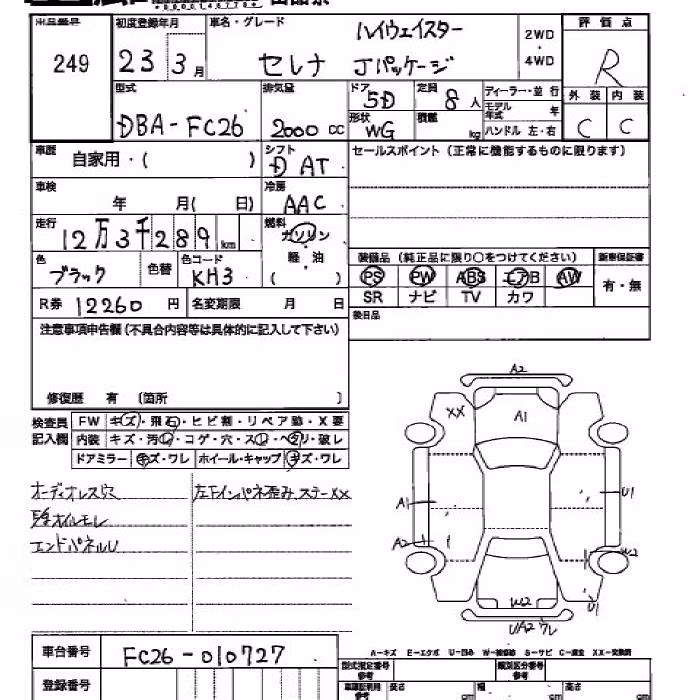 出品番号 249
初度登録年月 23 3月
車名・グレード セレナ ハイウェイスター Jパッケージ
2WD・4WD
評価点 R
外装 C 内装 C
型式 DBA-FC26
排気量 2000 CC
ドア 5D
形状 WG
定員 8人
積載 kg
ディーラー・並行
モデル年式 年
ハンドル 左・右
車歴 自家用・( )
シフト D AT
セールスポイント(正常に機能するものに限ります)
車検 年 月( 日)
冷房 AAC
走行 12万3千289km
燃料 ガソリン 軽・油 ( )
色 ブラック 色替
色コード KH3
装備品(純正品に限り○をつけてください)
PS PW ABS エアB AW
SR ナビ TV カワ
新車保証書 有・無
R券 12260円
名変期限 月 日
後日品
注意事項申告欄(不具合内容等は具体的に記入して下さい)
修復歴 有 (箇所 )
検査員記入欄
FW キズ・飛石・ヒビ割・リペア跡・X要
内装 キズ・汚レ・コゲ・穴・スレ・ヘタリ・破レ
ドアミラー キズ・ワレ ホイール・キャップ キズ・ワレ
オーディオレス穴
左下インパネ歪み ステーXX
オイルモレ
エンドパネルU
A2
XX
A1
A1
U1
A2
W2
W2
U1
UA2ワレ
A-キズ E-エクボ U-凹み W-補修跡 S-サビ C-腐食 XX-交換済
車台番号 FC26-010727
登録番号
型式指定番号 参考
類別区分番号 参考
車検証明用 参考 長さ cm 幅 cm 高さ cm